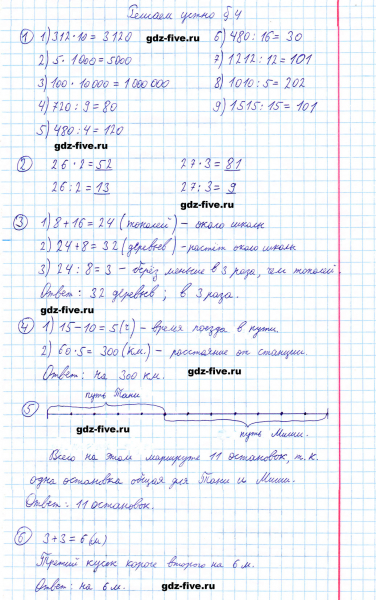 Решаем устно §4
① 1) 312·10 = 3120 gdz-five.ru 6) 480 : 16 = 30
2) 5·1000 = 5000 7) 1212 : 12 = 101
3) 100·10000 = 1000000 8) 1010 : 5 = 202
4) 720 : 9 = 80 9) 1515 : 15 = 101
5) 480 : 4 = 120
gdz-five.ru
② 26·2 = 52 27·3 = 81
26 : 2 = 13 27 : 3 = 9
gdz-five.ru
③ 1) 8+16 = 24 (тополей) – около школы
2) 24+8 = 32 (деревьев) – растет около школы
3) 24 : 8 = 3 – берёз меньше в 3 раза, чем тополей.
Ответ: 32 деревьев; в 3 раза.
gdz-five.ru
④ 1) 15–10 = 5 (ч) – время поезда в пути.
2) 60·5 = 300 (км.) – расстояние от станции.
Ответ: на 300 км. gdz-five.ru
путь Тани
⑤
gdz-five.ru путь Миши.
Всего на этом маршруте 11 остановок, т.к.
одна остановка общая для Тани и Миши.
Ответ: 11 остановок. gdz-five.ru
⑥ 3+3 = 6 (м)
Третий кусок короче второго на 6 м.
Ответ: на 6 м. gdz-five.ru